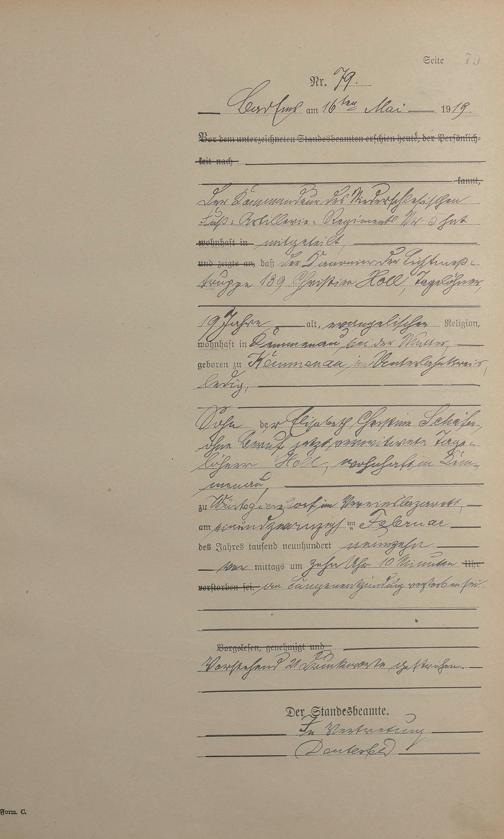 Seite 79
Nr. 79.
Bad Ems am 16ten Mai 1919.
Vor dem unterzeichneten Standesbeamten erschien heute, der Persönlich-
keit nach
kannt,
Der Kommandeur des Niederschlesischen
Fuß-Artillerie-Regiments Nr 5 hat
wohnhaft in mitgeteilt,
und zeigte an, daß der Kanonier der Lichtmeß-
truppe 139 Christian Holl, Tagelöhner
19 Jahre alt, evangelischer Religion,
wohnhaft in Kemmenau, bei der Mutter,
geboren zu Kemmenau, im Unterlahnkreis,
ledig,
Sohn der Elisabeth Christine Schäfer,
ohne Beruf jetzt verwitwete Tage-
löhner Holl, wohnhaft in Kem-
menau,
zu im Vereinslazarett,
am ten Februar
des Jahres tausend neunhundert neunzehn
vor mittags um zehn Uhr 10 Minuten Uhr
verstorben sei. an Lungenentzündung verstorben sei.
Vorgelesen, genehmigt und
Vorstehend 21 Druckworte gestrichen.
Der Standesbeamte.
In Vertretung
Form. C.